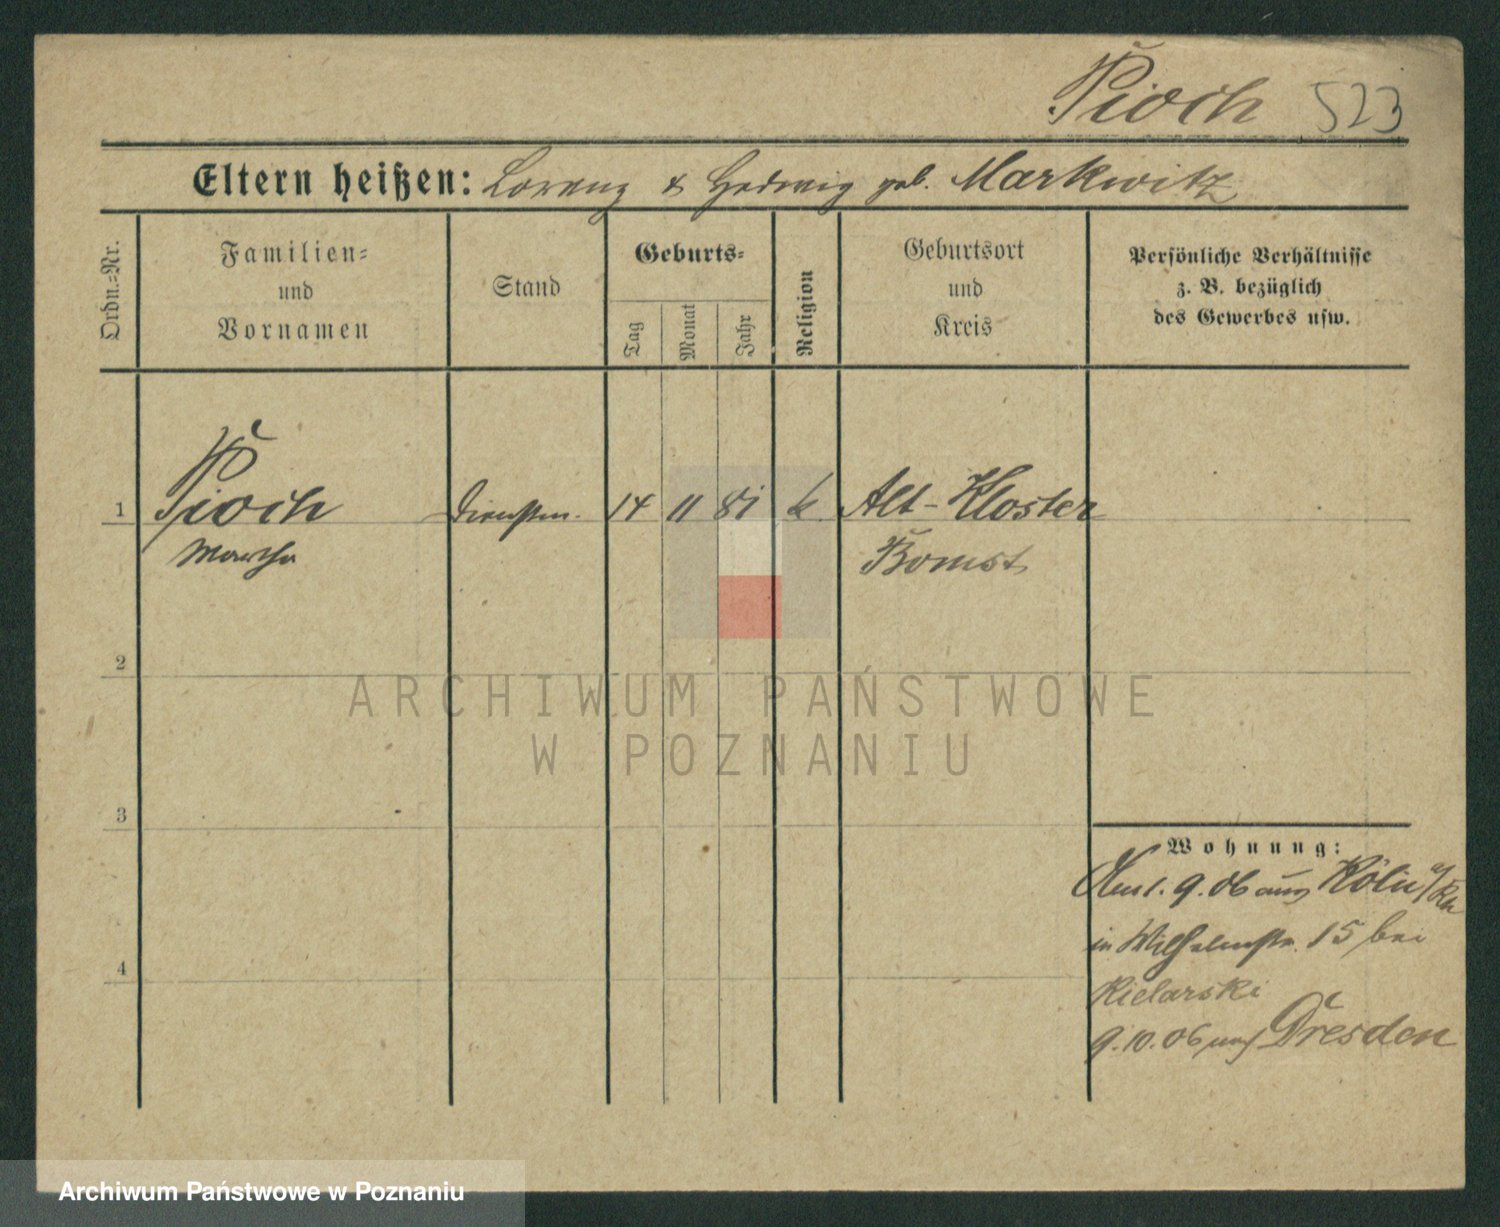 Pioch 523
Eltern heißen: Lorenz & Hedwig geb. Markwitz
Ordn.-Nr.
Familien-
und
Vornamen
Stand
Geburts-
Tag
Monat
Jahr
Religion
Geburtsort
und
Kreis
Persönliche Verhältnisse
z. B. bezüglich
des Gewerbes usw.
1 Pioch 14 11 81 k Alt-Kloster
Martha Bomst
2
3
4
Wohnung:
1. 9. 06 aus Köln a/Rh
in Wilhelmstr. 15 bei
Kielarski
9. 10. 06 nach Dresden
ARCHIWUM PAŃSTWOWE
W POZNANIU
Archiwum Państwowe w Poznaniu